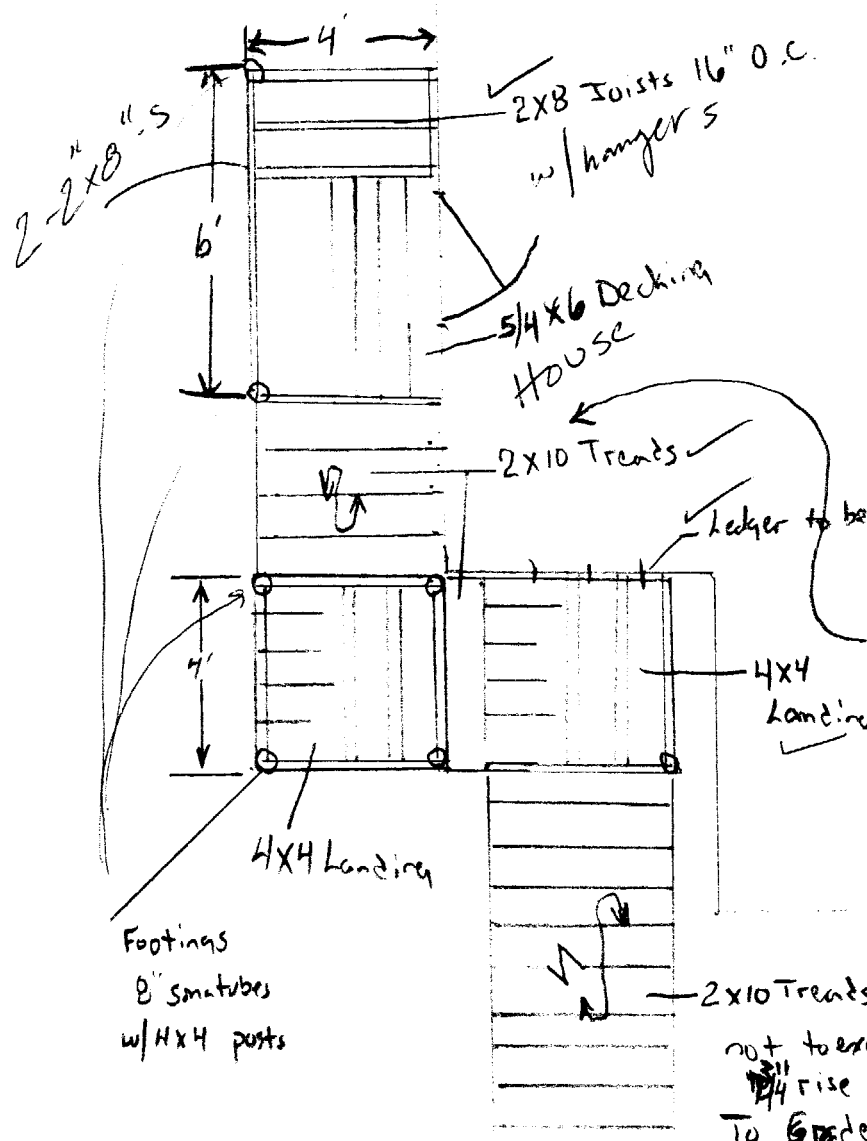 4'
2x8 Joists 16" O.C.
w/hangers
2-2x8"s
6'
5/4x6 Decking
House
2x10 Treads
Ledger to be
4'
4x4
Landing
4x4 Landing
Footings
8" sonatubes
w/4x4 posts
2x10 Treads
not to
rise
To Grade